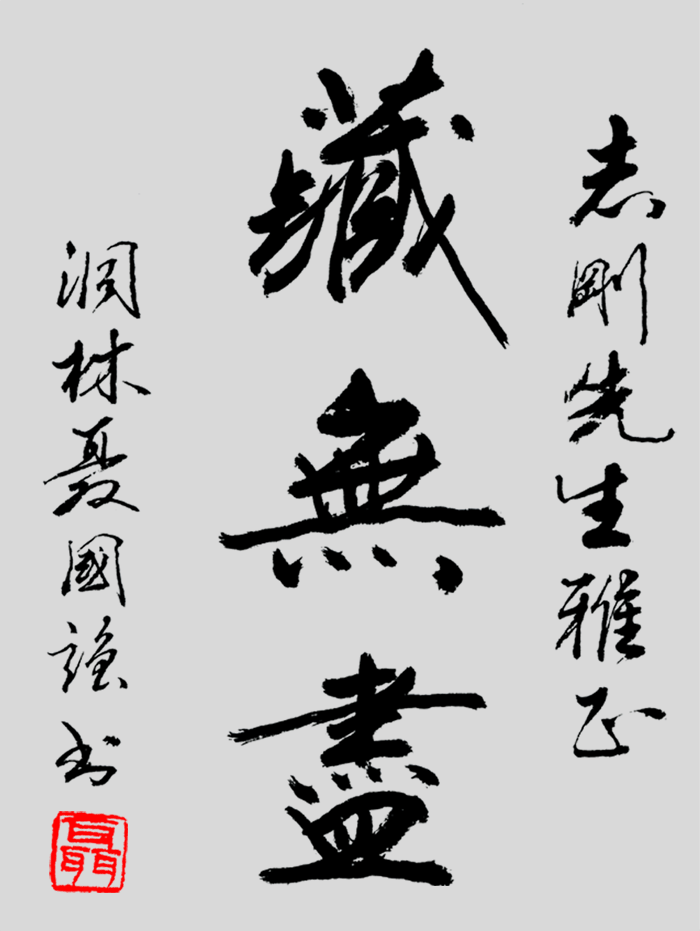 志剛先生雅正
藏無盡
洞林聂國強书
聶